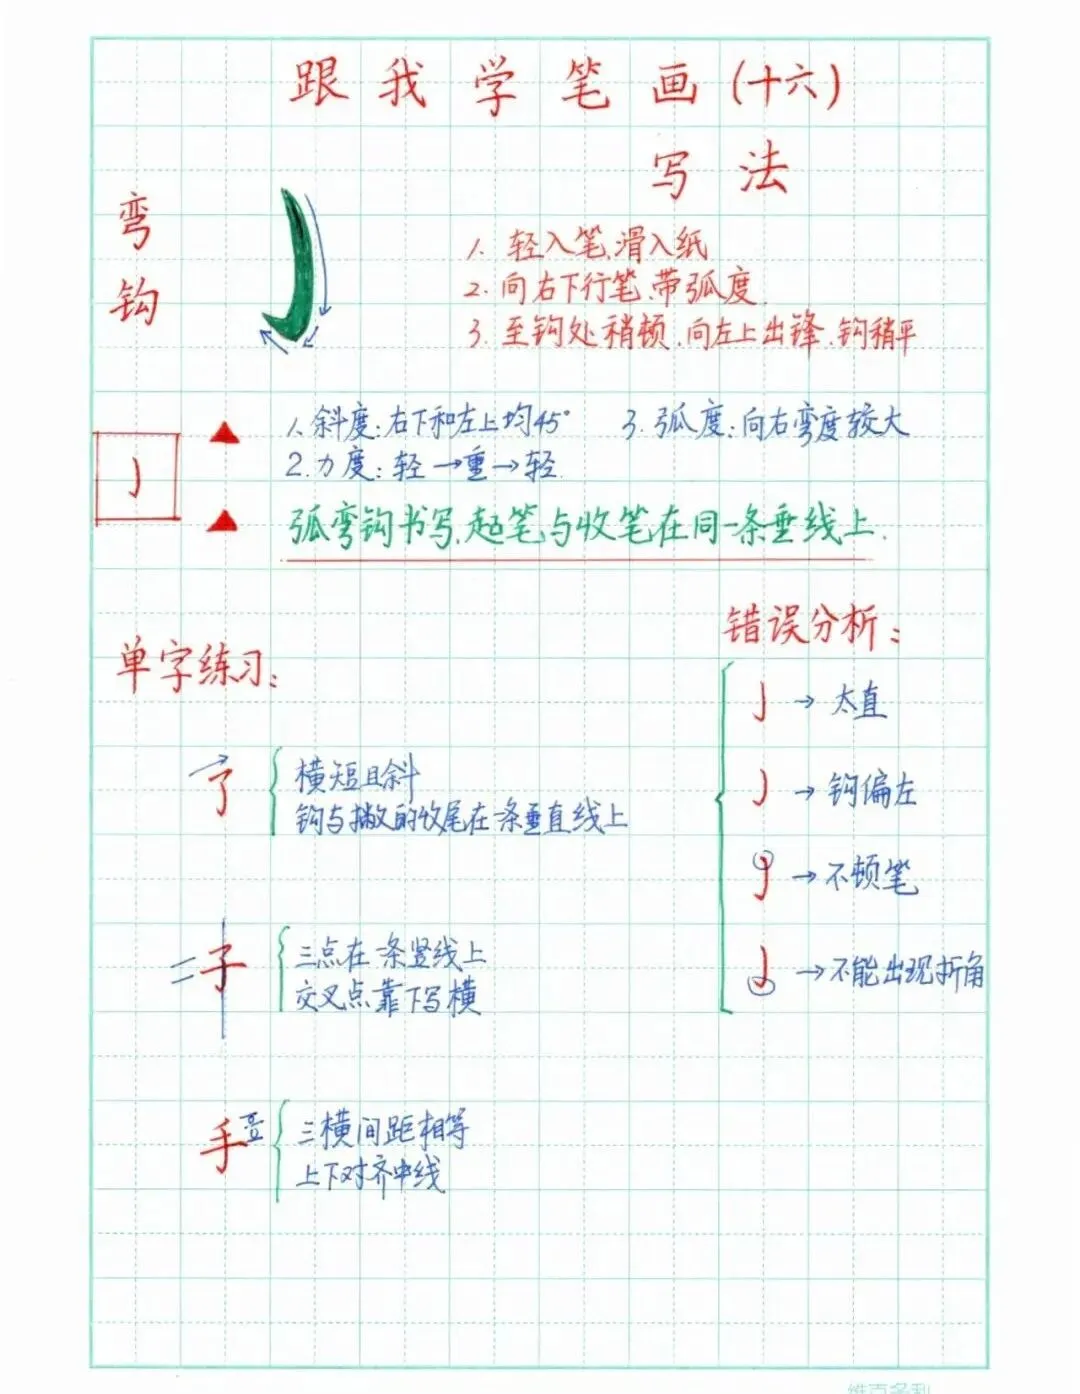 跟我学笔画(十六)
弯钩
写法
1.轻入笔、滑入纸
2.向右下行笔、带弧度.
3.至钩处稍顿.向左上出锋.钩稍平
1.斜度:右下和左上均45°
2.力度:轻→重→轻.
3.弧度:向右弯度较大
弧弯钩书写,起笔与收笔在同一条垂线上.
单字练习:
了
横短且斜
钩与撇的收尾在一条垂直线上
子
三点在一条竖线上
交叉点靠下写横
手
三横间距相等
上下对齐中线
错误分析:
→太直
→钩偏左
→不顿笔
→不能出现折角